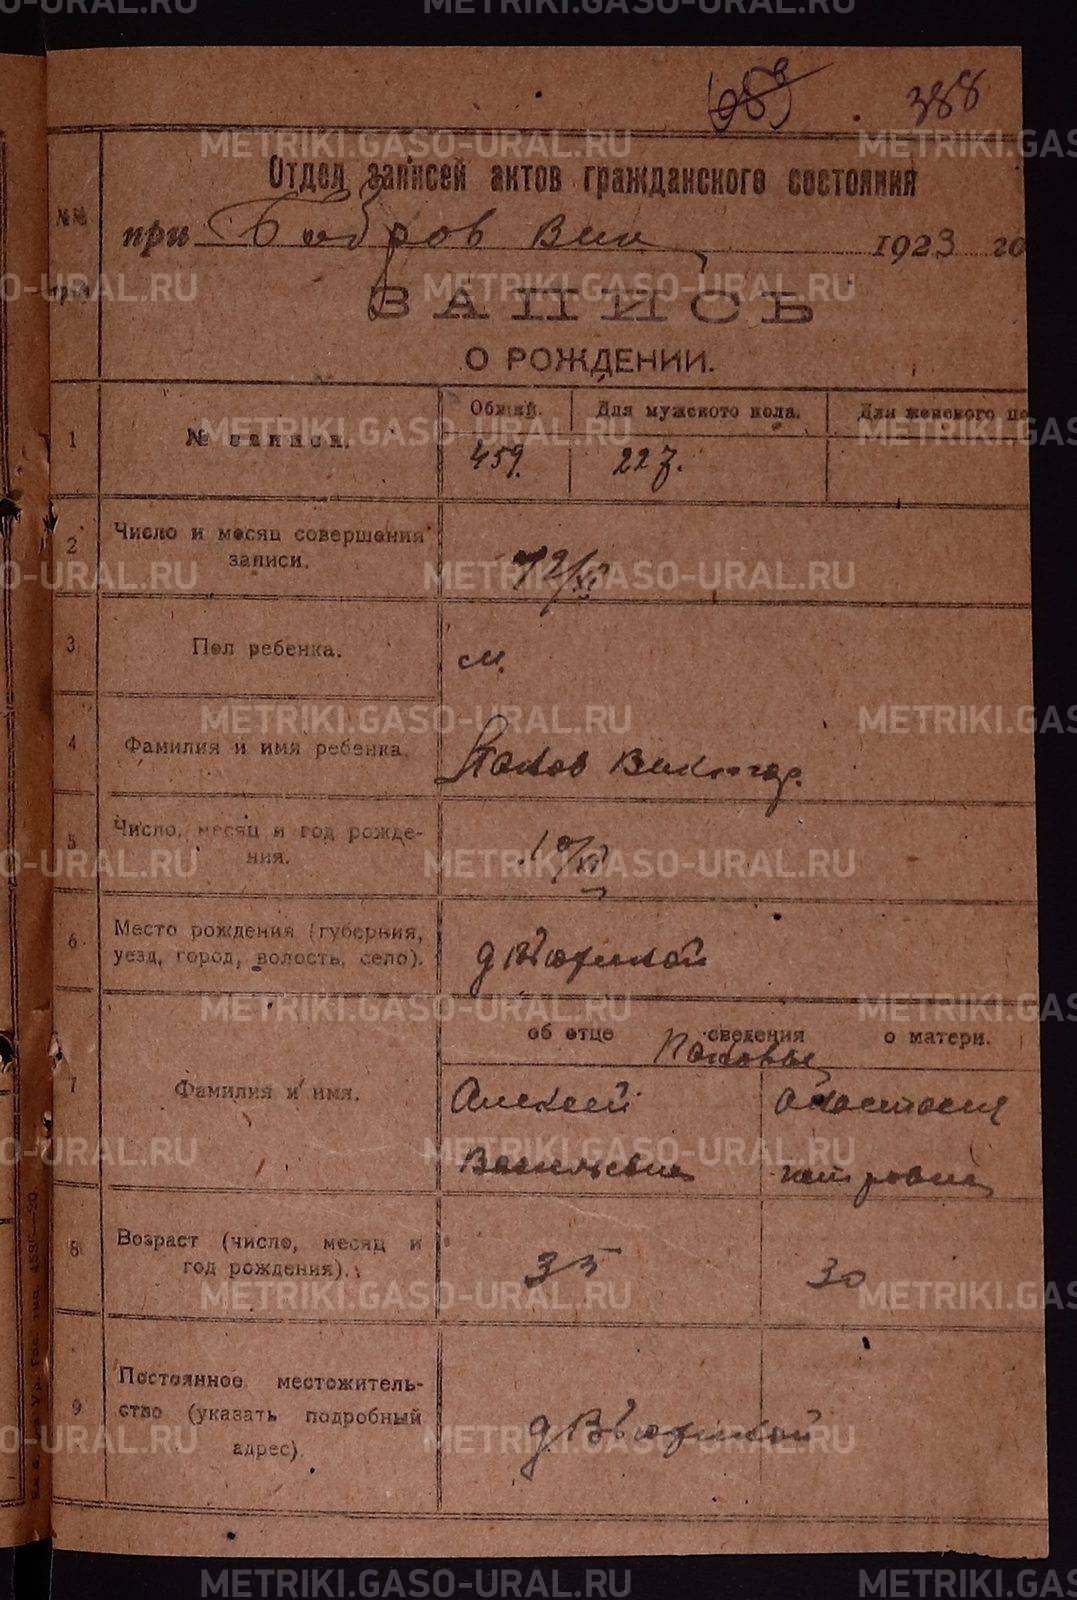 METRIKI.GASO-URAL.RU
388
Отдел записей актов гражданского состояния
№№
при Бобров Вик 1923 го
ЗАПИСЬ
О РОЖДЕНИИ.
1 № записи.
Общий. Для мужского пола. Для женского по
459. 227.
2 Число и месяц совершения записи.
12/XI
3 Пол ребенка.
м.
4 Фамилия и имя ребенка.
Попов Виктор.
5 Число, месяц и год рожде-
ния.
10/XI
6 Место рождения (губерния,
уезд, город, волость, село).
д
7 Фамилия и имя.
об отце сведения о матери.
Поповы
Алексей Анастасия
Васильевич Петровна
8 Возраст (число, месяц и
год рождения).
35 30
9 Постоянное местожитель-
ство (указать подробный
адрес).
д